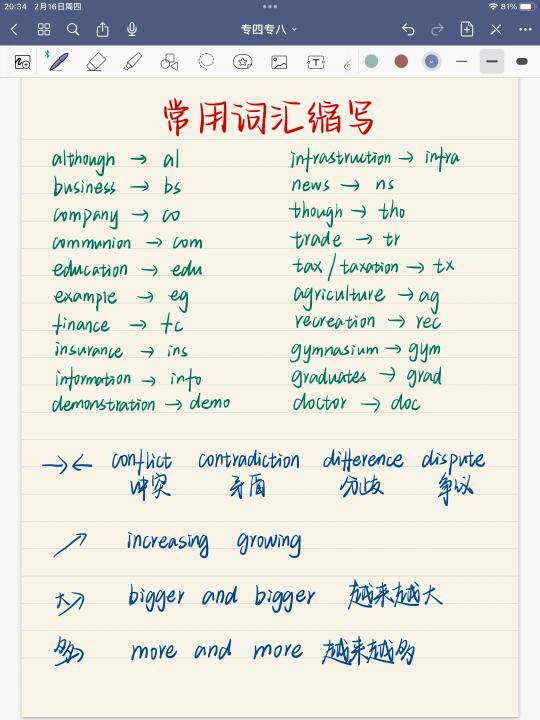 20:34 2月16日周四 81%
专四专八
常用词汇缩写
although → al
business → bs
company → co
communion → com
education → edu
example → eg
finance → fc
insurance → ins
information → info
demonstration → demo
infrastruction → infra
news → ns
though → tho
trade → tr
tax / taxation → tx
agriculture → ag
recreation → rec
gymnasium → gym
graduates → grad
doctor → doc
→← conflict contradiction difference dispute
冲突 矛盾 分歧 争议
↗ increasing growing
大↗ bigger and bigger 越来越大
多↗ more and more 越来越多